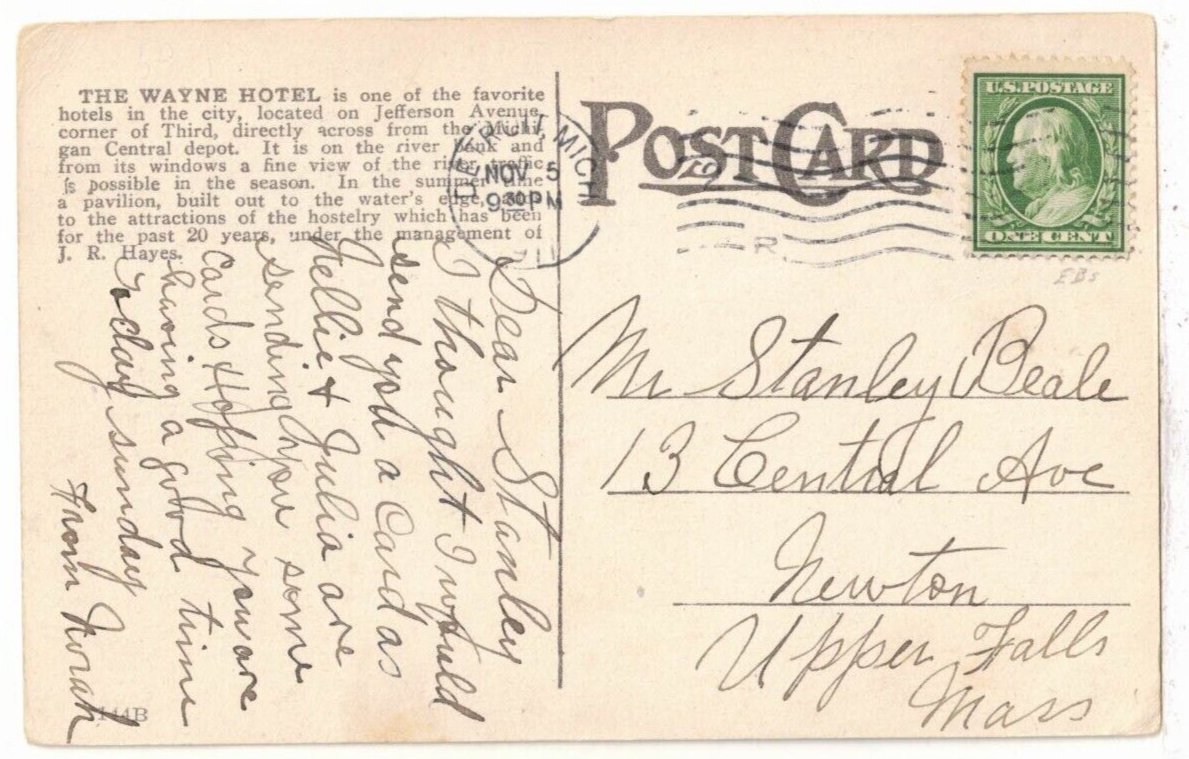 THE WAYNE HOTEL is one of the favorite
hotels in the city, located on Jefferson Avenue,
corner of Third, directly across from the Michi-
gan Central depot. It is on the river bank and
from its windows a fine view of the river traffic
is possible in the season. In the summer time
a pavilion, built out to the water's edge,
to the attractions of the hostelry which has been
for the past 20 years, under the management of
J. R. Hayes.
Dear Stanley
I thought I would
send you a Card as
Nellie & Julia are
sending you some
Cards Hopping you are
having a good time
to day sunday
From Norah
144B
MICH
NOV 5
930 PM
POST CARD
R
U.S. POSTAGE
ONE CENT
EBs
Mr Stanley Beale
13 Central Ave
Newton
Upper Falls
Mass